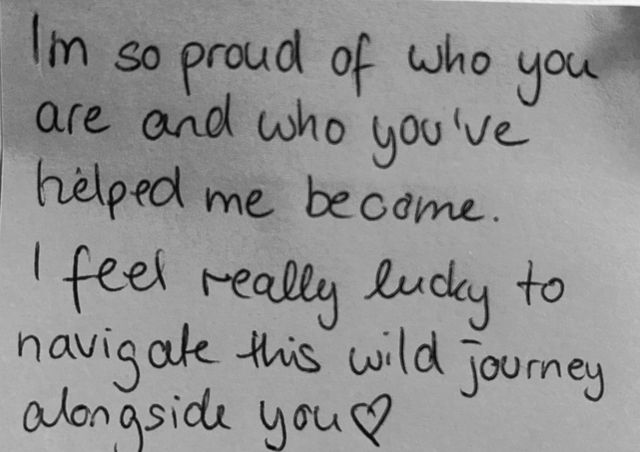 Im so proud of who you
are and who you've
helped me become.
I feel really lucky to
navigate this wild journey
alongside you♡